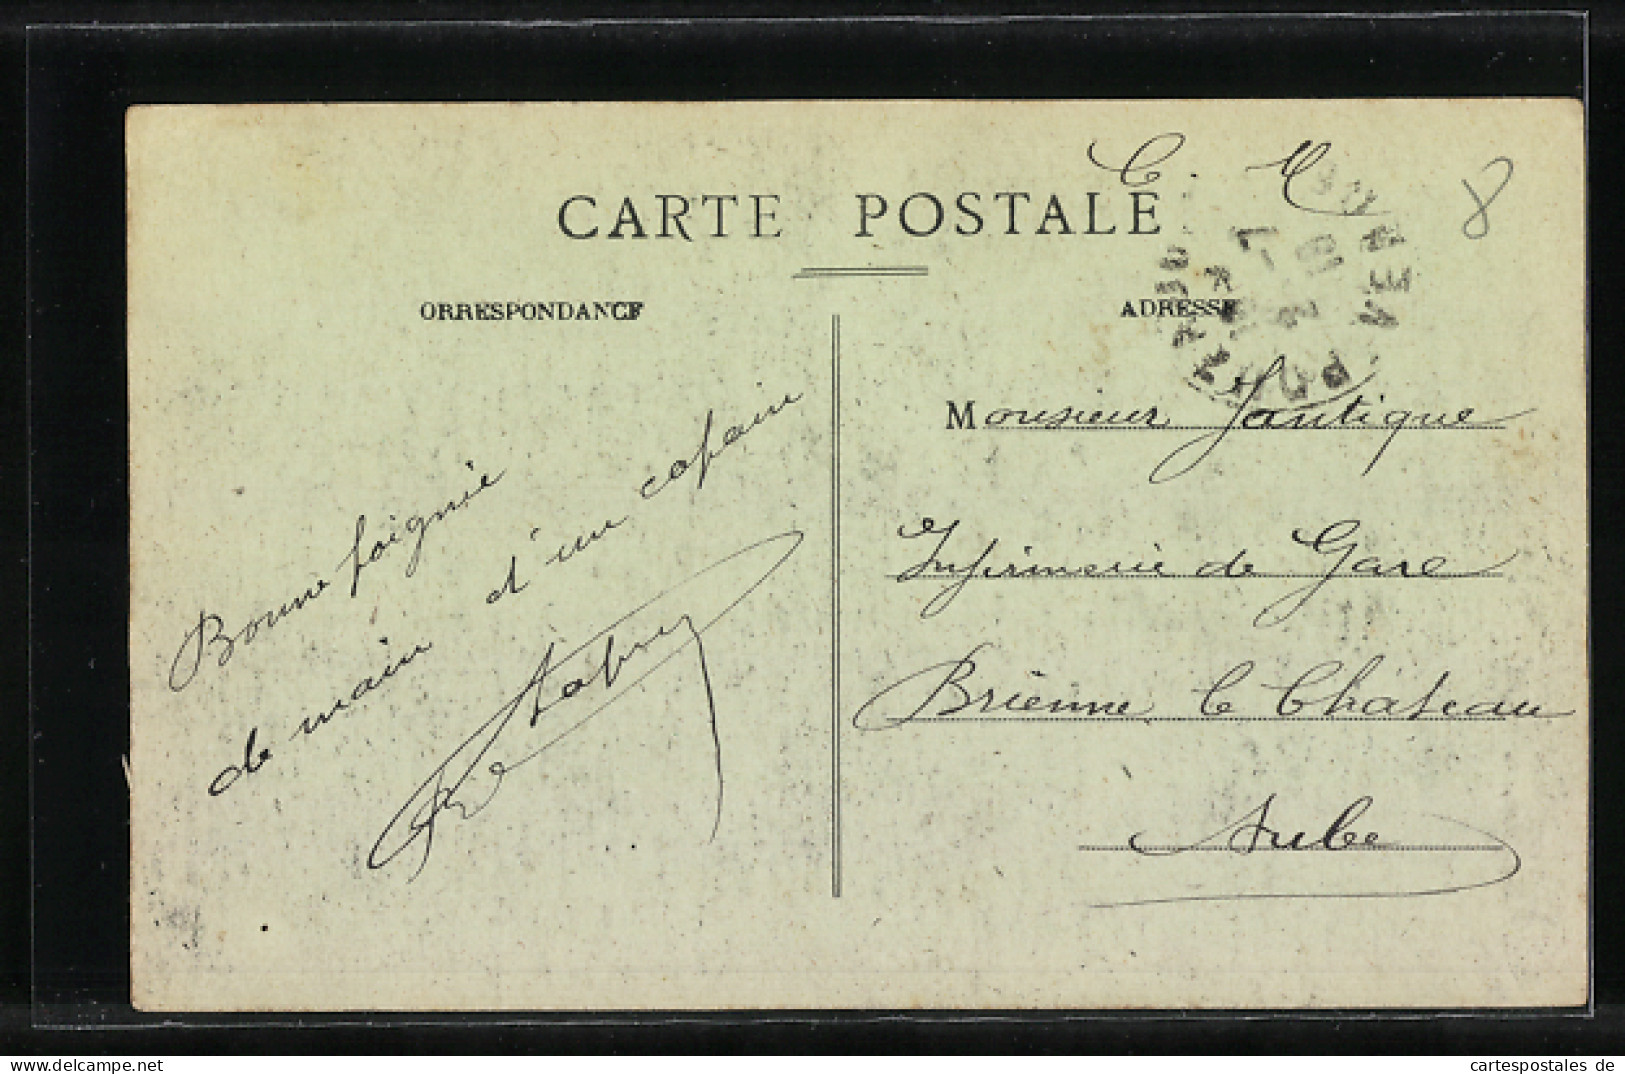 C. M
8
CARTE POSTALE
ORRESPONDANCE
ADRESSE
Bonne poignie
de main d'un copain
Monsieur Jantique
Infirmerie de Gare
Brienne le Château
Aube
delcampe.net
cartespostales de